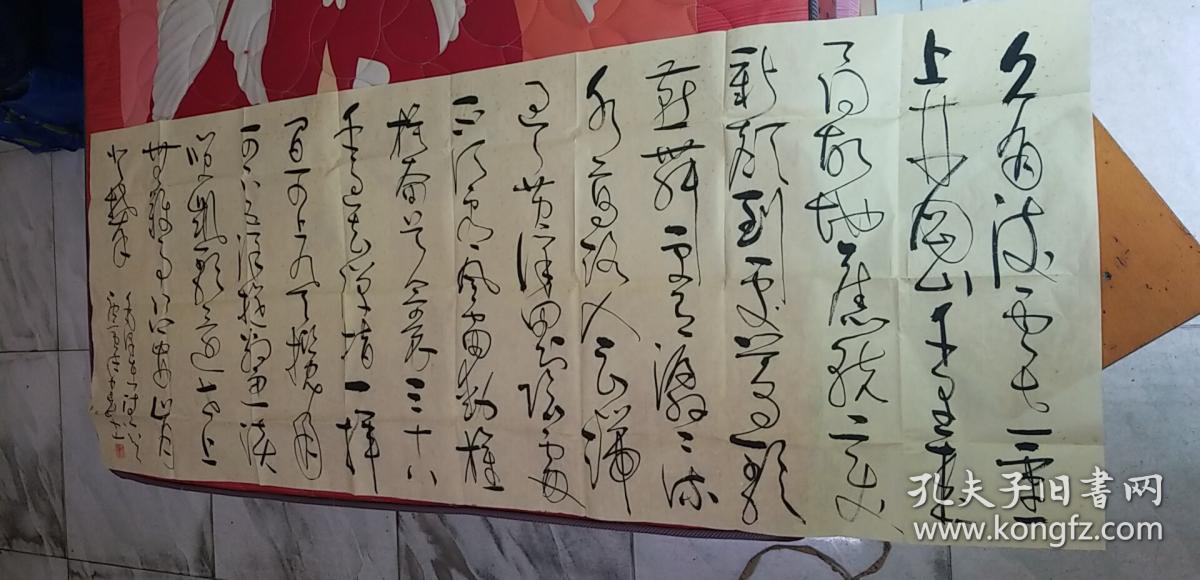 久有凌云志重
上井冈山千里来
寻故地旧貌变
新颜到处莺歌
燕舞更有潺潺流
水高路入云端
过了黄洋界险处
不须看风雷动旌
旗奋是人寰三十八
年过去弹指一挥
间可上九天揽月
可下五洋捉鳖谈
笑凯歌还世上
无难事只要肯
登攀
孔夫子旧书网
www.kongfz.com